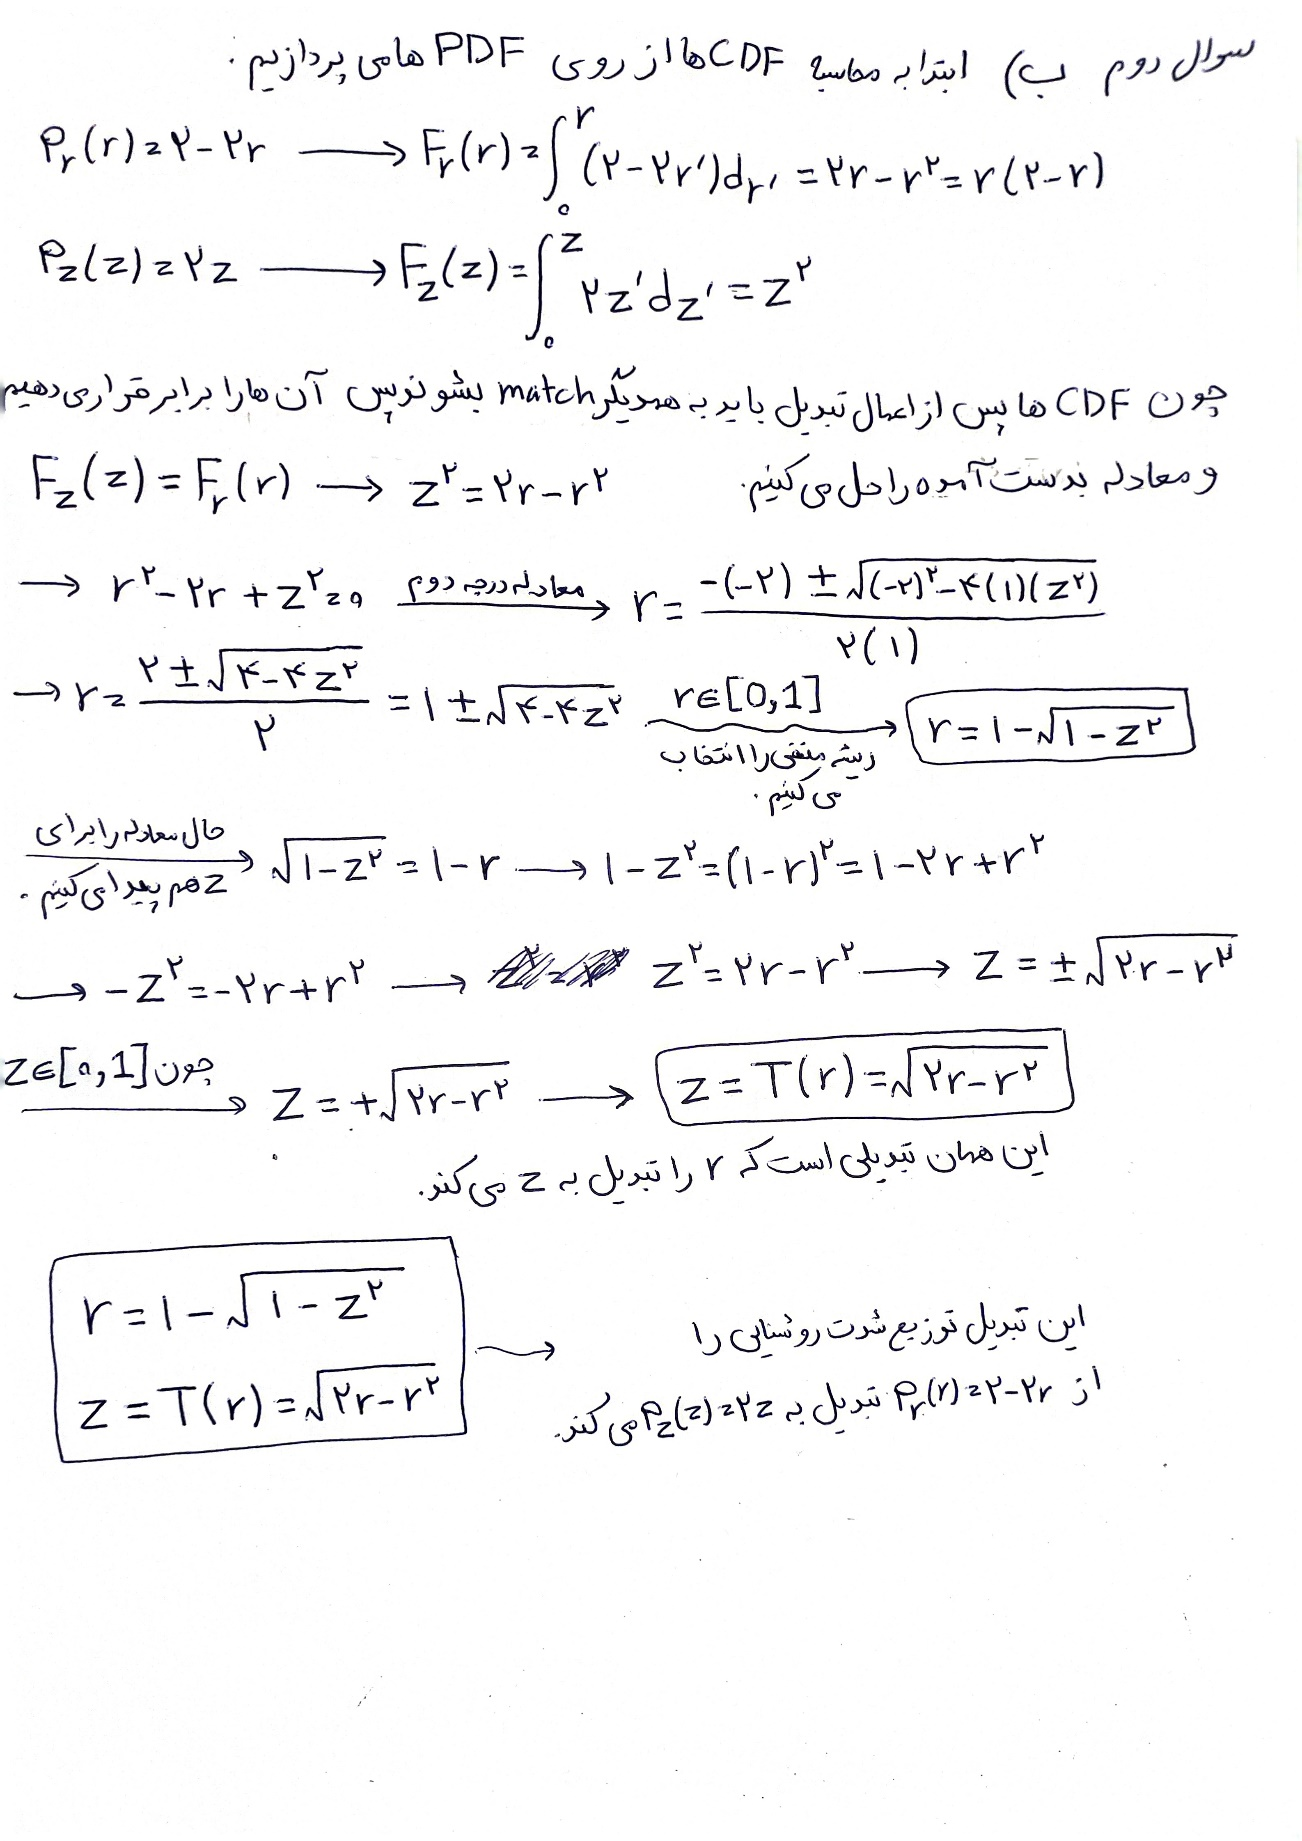 سوال دوم ب) ابتدا به محاسبه CDF ها از روی PDF ها می پردازیم.
P_r(r)=۲-۲r ⟶ F_r(r)=∫₀^r (۲-۲r')dr' = ۲r-r^۲=r(۲-r)
P_z(z)=۲z ⟶ F_z(z)=∫₀^z ۲z'dz' = z^۲
چون CDF ها پس از اعمال تبدیل باید به همدیگر match بشوند پس آن ها را برابر قرار می دهیم
و معادله بدست آمده را حل می کنیم.
F_z(z)=F_r(r) ⟶ z^۲=۲r-r^۲
⟶ r^۲-۲r+z^۲=0 معادله درجه دوم ⟶ r= (-(-۲) ± √((-۲)^۲-۴(۱)(z^۲))) / ۲(۱)
⟶ r= (۲±√(۴-۴z^۲)) / ۲ = ۱±√(۴-۴z^۲) r∈[0,1] ⟶ r=۱-√(۱-z^۲)
ریشه منفی را انتخاب
می کنیم.
حال معادله را برای
z هم پیدا می کنیم. ⟶ √(۱-z^۲) = ۱-r ⟶ ۱-z^۲=(۱-r)^۲=۱-۲r+r^۲
⟶ -z^۲=-۲r+r^۲ ⟶ z^۲=۲r-r^۲ ⟶ z=±√(۲r-r^۲)
چون z∈[0,1] ⟶ z=+√(۲r-r^۲) ⟶ z=T(r)=√(۲r-r^۲)
این همان تبدیلی است که r را تبدیل به z می کند.
r=۱-√(۱-z^۲)
z=T(r)=√(۲r-r^۲) ⟶
این تبدیل توزیع شدت روشنایی را
از P_r(r)=۲-۲r تبدیل به P_z(z)=۲z می کند.